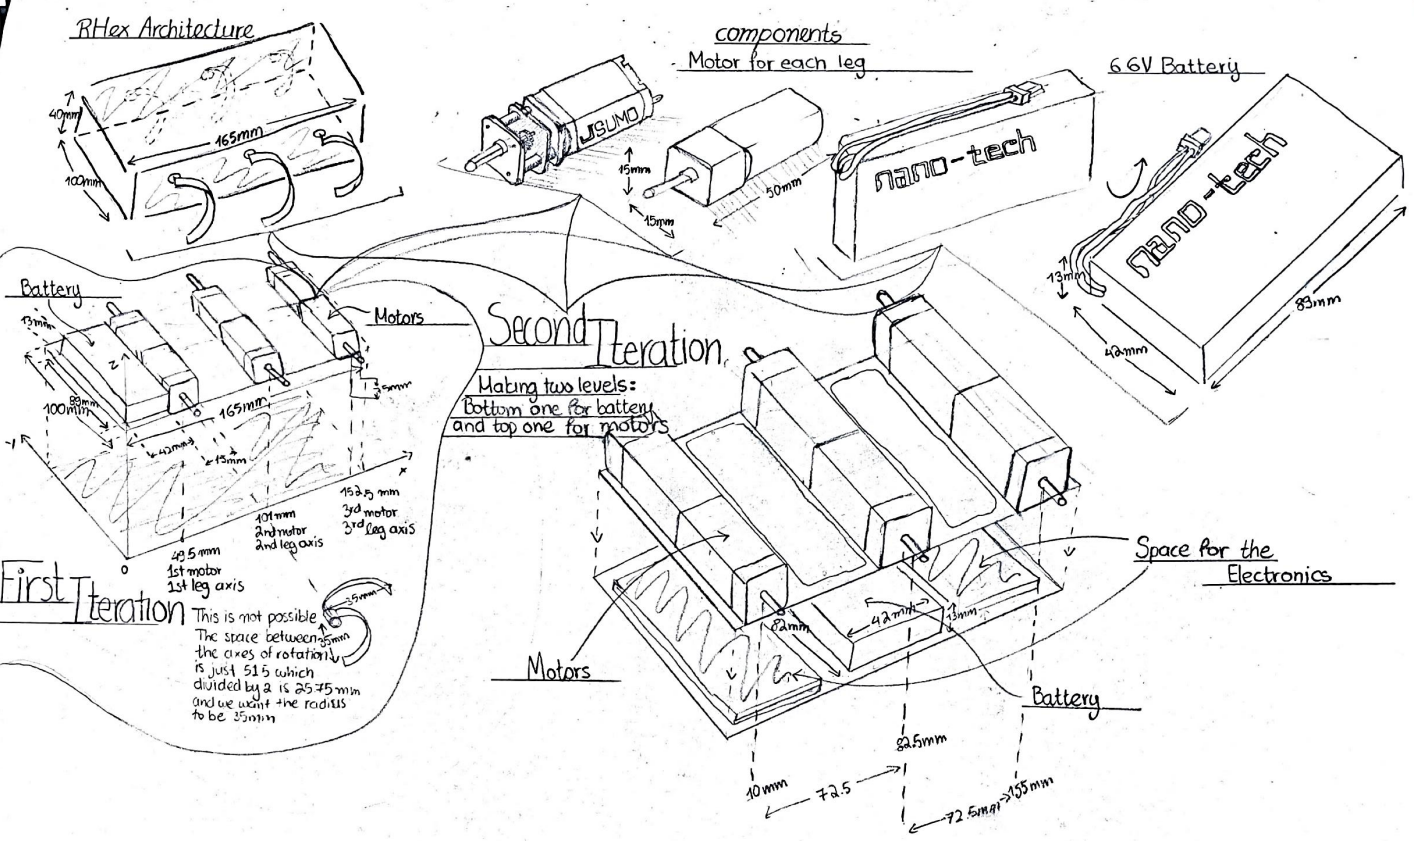 RHex Architecture
40mm
165mm
100mm
components
Motor for each leg
JSUMO
15mm
15mm
50mm
nano-tech
6 6V Battery
nano-tech
13mm
42mm
89mm
Battery
13mm
Motors
Z
5mm
89mm
100mm
165mm
42mm
15mm
Y
X
0
49.5 mm
1st motor
1st leg axis
101mm
2nd motor
2nd leg axis
152.5 mm
3rd motor
3rd leg axis
First Iteration
This is not possible
The space between
the axes of rotation
is just 515 which
divided by 2 is 2575mm
and we want the radius
to be 35mm
35mm
35mm
Second Iteration
Making two levels:
Bottom one for battery
and top one for motors
Motors
82mm
42mm
13mm
Space for the
Electronics
Battery
10mm
72.5
82.5mm
72.5mm
155mm